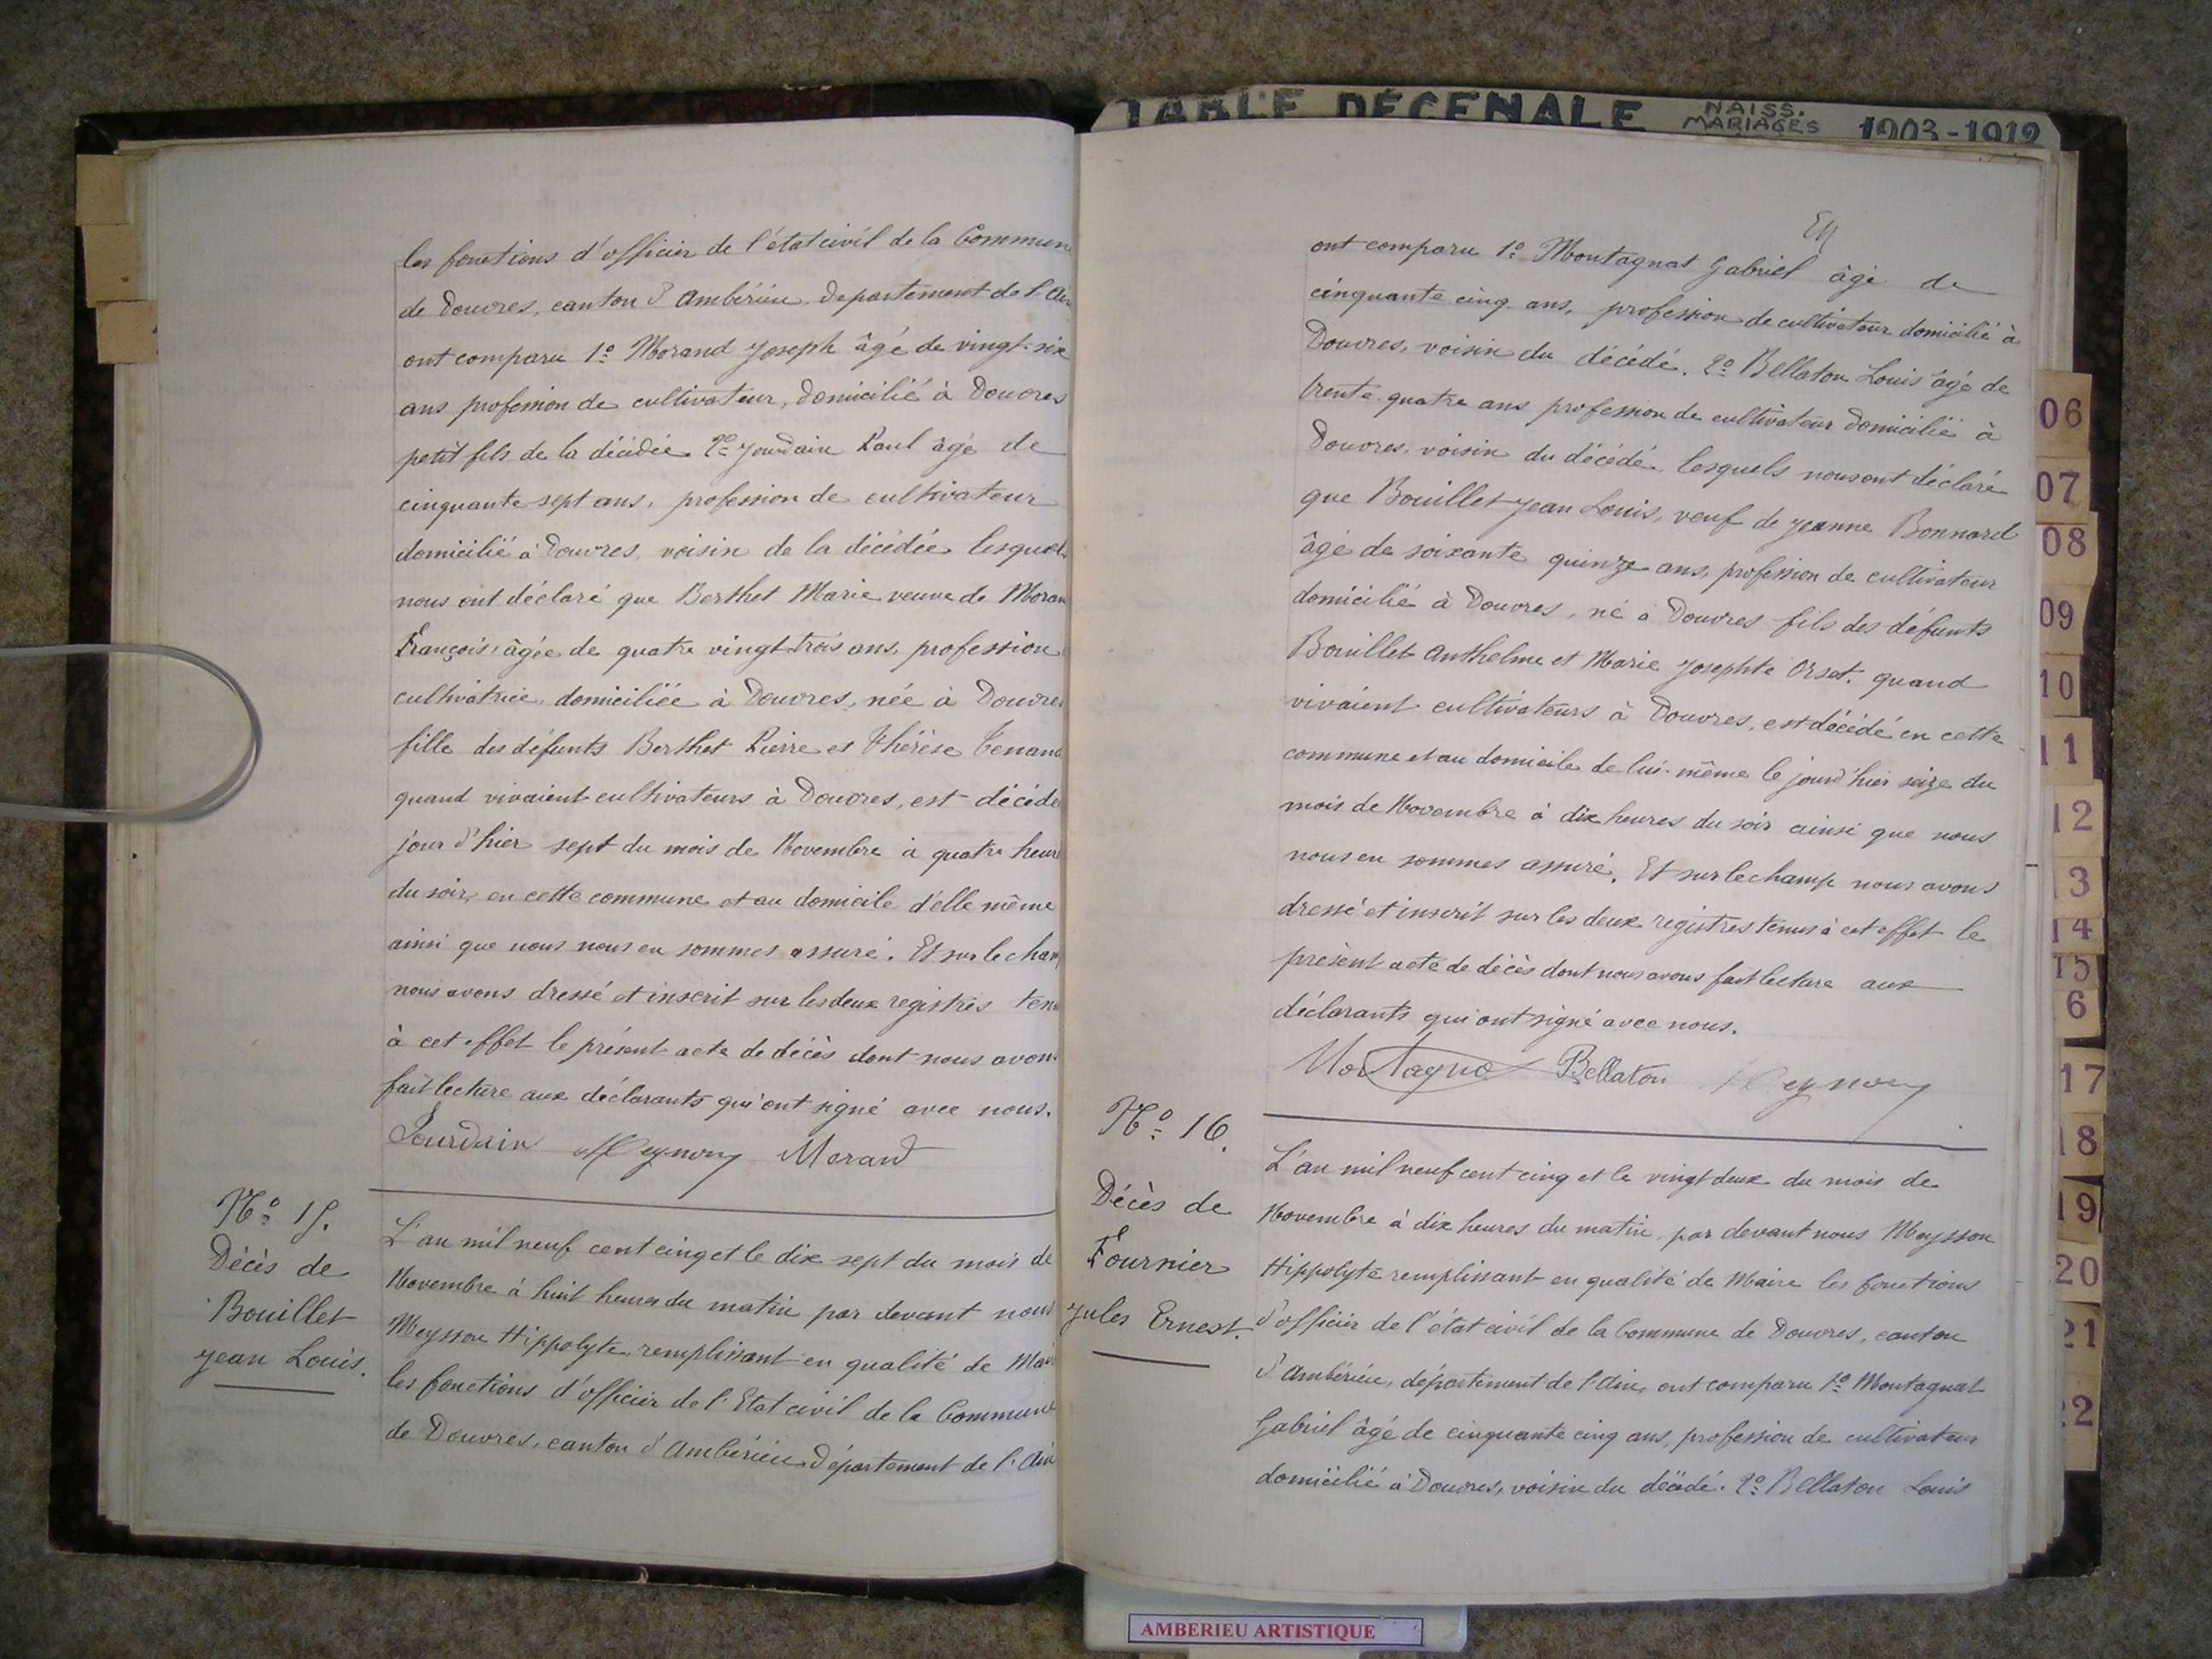 TABLE DÉCENALE NAISS. MARIAGES 1903-1912
les fonctions d'officier de l'état civil de la Commun
de Douvres, canton d'Ambérieu département de l'Ain
ont comparu 1º Morand Joseph âgé de vingt-six
ans profession de cultivateur, domicilié à Douvres
petit fils de la décédée 2º Jourdain Paul âgé de
cinquante sept ans, profession de cultivateur
domicilié à Douvres, voisin de la décédée lesquels
nous ont déclaré que Berthet Marie veuve de Moran
François, âgée de quatre vingt trois ans, profession
cultivatrice, domiciliée à Douvres, née à Douvres
fille des défunts Berthet Pierre et Thérèse Tenand
quand vivaient cultivateurs à Douvres, est décédé
jour d'hier sept du mois de Novembre à quatre heure
du soir, en cette commune et au domicile d'elle même
ainsi que nous nous en sommes assuré. Et sur le cham
nous avons dressé et inscrit sur les deux registres tenu
à cet effet le présent acte de décès dont nous avons
fait lecture aux déclarants qui ont signé avec nous.
Jourdain Meysson Morand
Nº 15.
Décès de
Bouillet
Jean Louis.
L'an mil neuf cent cinq et le dix sept du mois de
Novembre à huit heures du matin par devant nous
Meysson Hippolyte, remplissant en qualité de Mair
les fonctions d'officier de l'Etat civil de la Commune
de Douvres, canton d'Ambérieu, département de l'Ain
ont comparu 1º Montagnat Gabriel âgé de
cinquante cinq ans, profession de cultivateur domicilié à
Douvres, voisin du décédé. 2º Bellaton Louis âgé de
trente-quatre ans profession de cultivateur domicilié à
Douvres, voisin du décédé, lesquels nous ont déclaré
que Bouillet Jean Louis, veuf de Jeanne Bonnard
âgé de soixante quinze ans, profession de cultivateur
domicilié à Douvres, né à Douvres fils des défunts
Bouillet Anthelme et Marie Josephte Orset, quand
vivaient cultivateurs à Douvres, est décédé en cette
commune et au domicile de lui-même le jourd'hier seize du
mois de Novembre à dix heures du soir ainsi que nous
nous en sommes assuré. Et sur le champ nous avons
dressé et inscrit sur les deux registres tenus à cet effet le
présent acte de décès dont nous avons fait lecture aux
déclarants qui ont signé avec nous.
Montagnat Bellaton Meysson
Nº 16.
Décès de
Fournier
Jules Ernest.
L'an mil neuf cent cinq et le vingt deux du mois de
Novembre à dix heures du matin, par devant nous Meysson
Hippolyte remplissant en qualité de Maire les fonctions
d'officier de l'état civil de la Commune de Douvres, canton
d'Ambérieu, département de l'Ain, ont comparu 1º Montagnat
Gabriel âgé de cinquante cinq ans, profession de cultivateur
domicilié à Douvres, voisin du décédé. 2º Bellaton Louis
06
07
08
09
10
11
12
3
14
15
6
17
18
19
20
21
2
AMBERIEU ARTISTIQUE